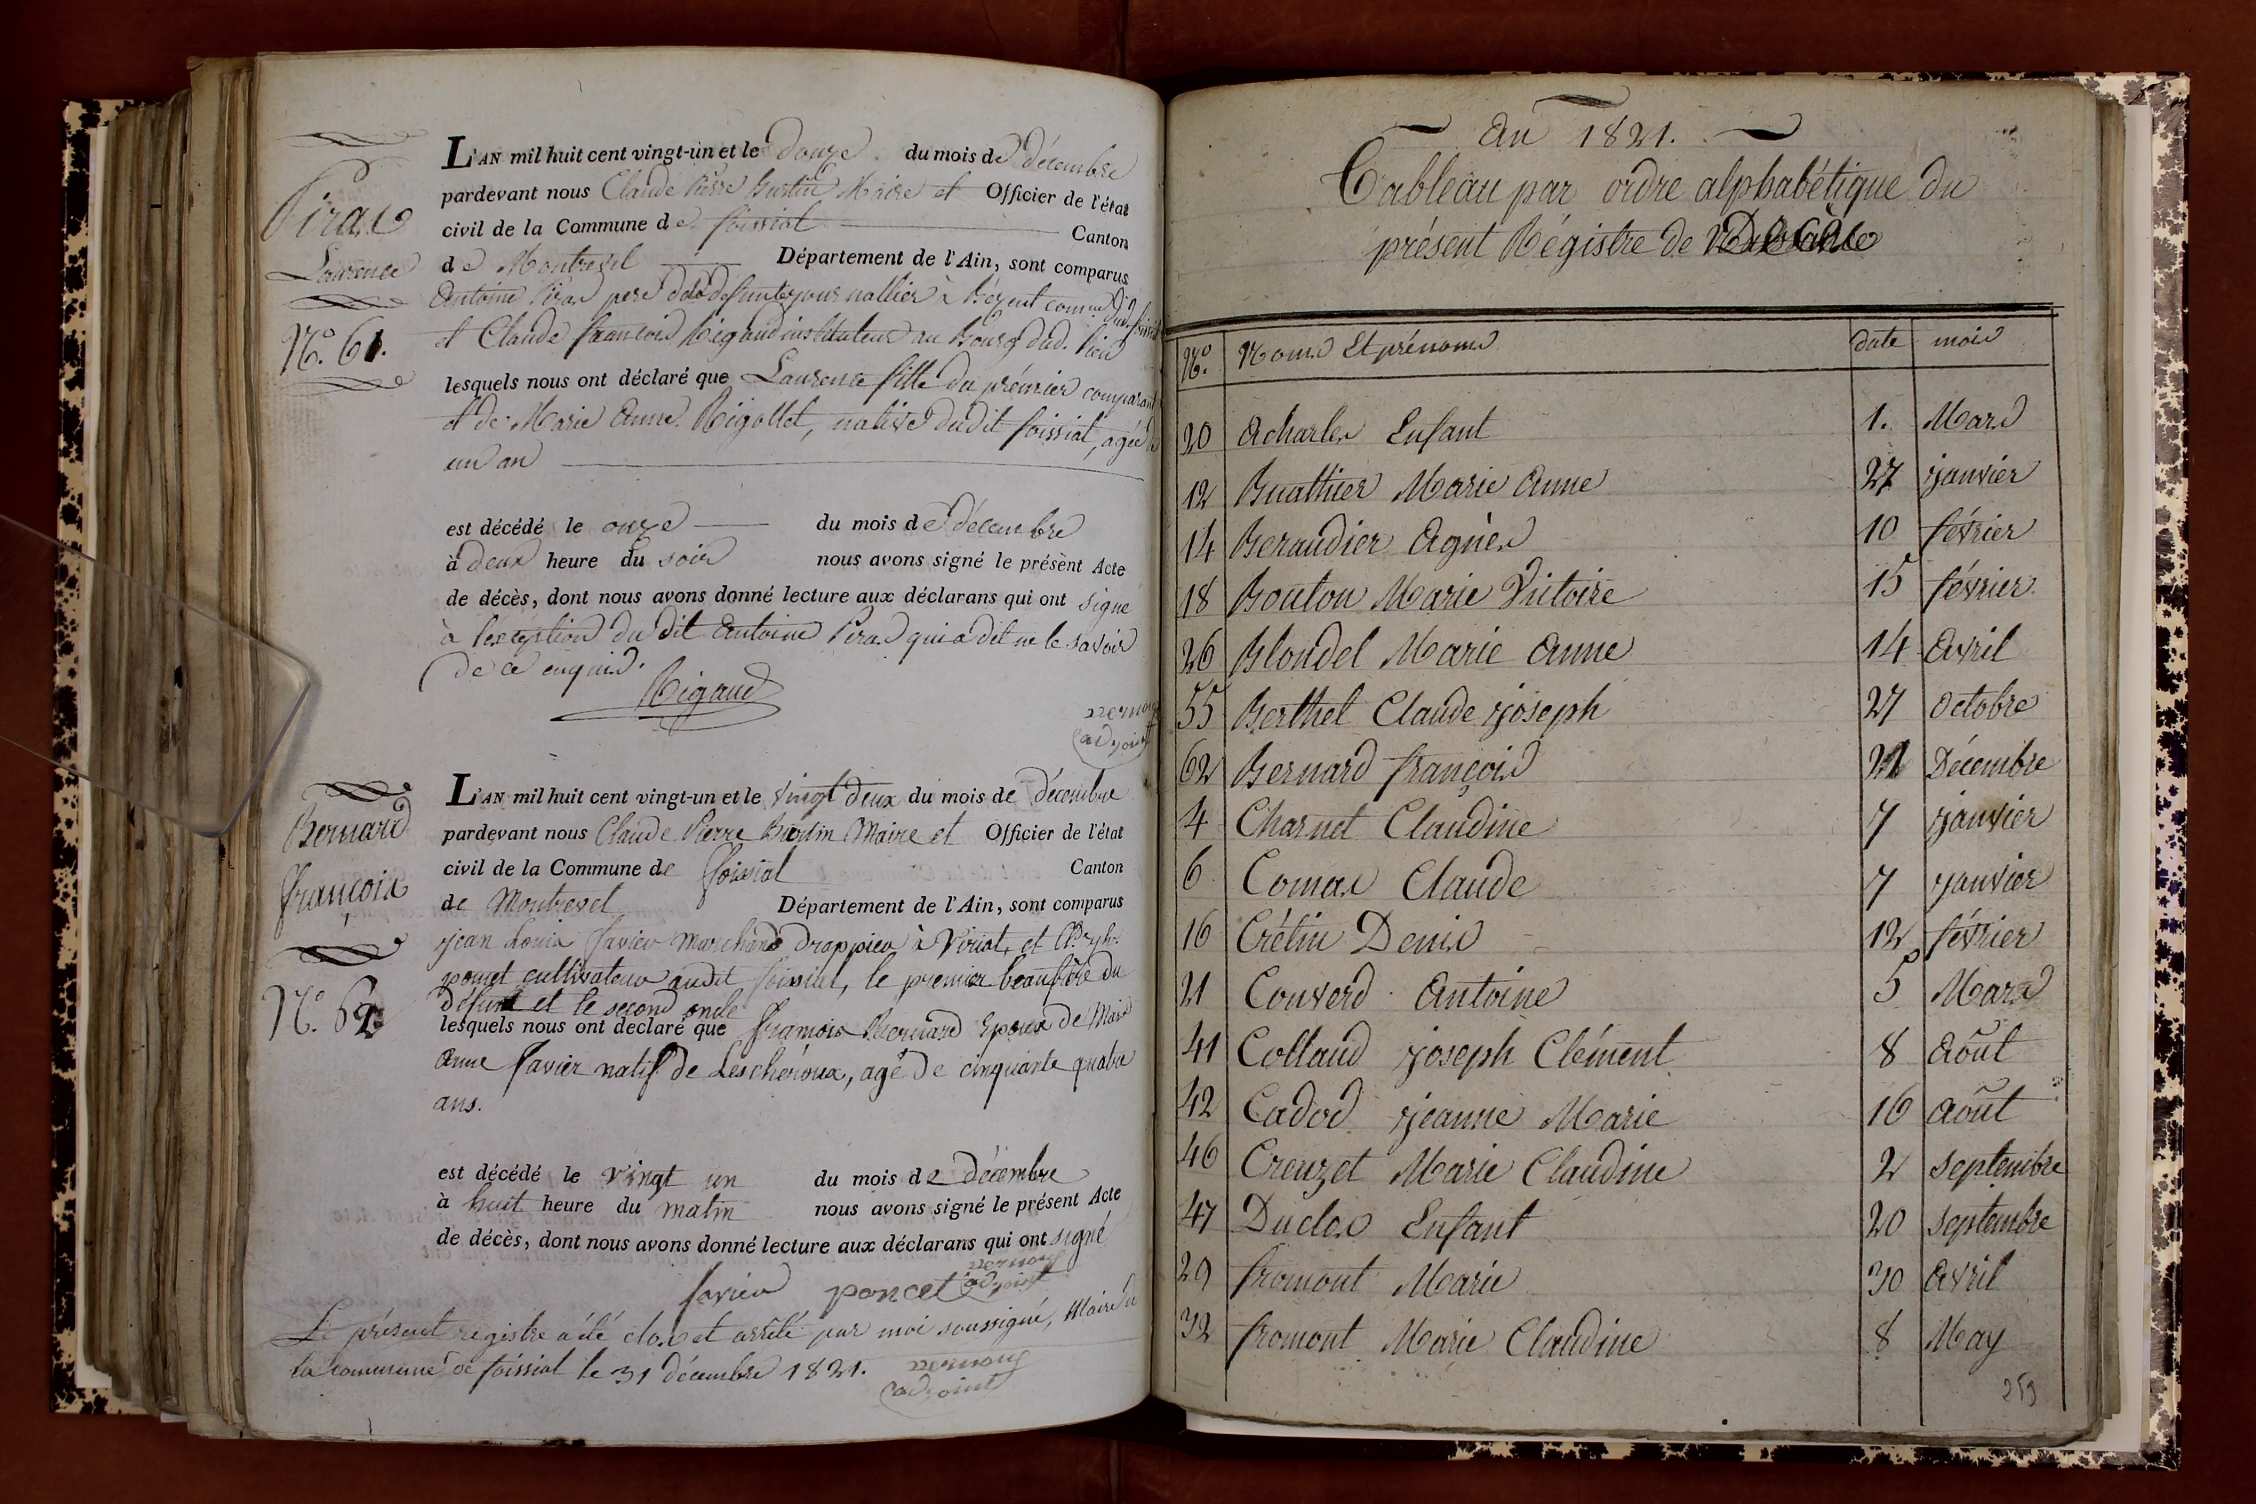 Piras
Laurence
N.° 61.
L'AN mil huit cent vingt-un et le douze du mois de décembre
pardevant nous Claude Pierre Burtin Maire et Officier de l'état
civil de la Commune de foissiat Canton
de Montrevel Département de l'Ain, sont comparus
Antoine Piras pere de la defunte journallier à Bézent commune dud. foissiat
et Claude françois Rigaud instituteur au Bourg dud. lieu
lesquels nous ont déclaré que Laurence fille du prémier comparant
et de Marie Anne Rigollet, native dudit foissiat, agée de
un an
est décédé le onze du mois de décembre
à deux heure du soir nous avons signé le présent Acte
de décès, dont nous avons donné lecture aux déclarans qui ont signé
à l'exception du dit Antoine Piras qui a dit ne le savoir
de ce enquis.
Rigaud
adjoint
Bernard
françois
N.° 62
L'AN mil huit cent vingt-un et le vingt deux du mois de décembre
pardevant nous Claude Pierre Burtin Maire et Officier de l'état
civil de la Commune de foissiat Canton
de Montrevel Département de l'Ain, sont comparus
jean Louis favier marchand drappier à Viriat, et
poncet cultivateur audit foissiat, le premier beaufrère du
défunt et le second oncle
lesquels nous ont déclaré que françois Bernard Epoux de Marie
Anne favier natif de Lescheroux, agé de cinquante quatre
ans.
est décédé le vingt un du mois de décembre
à huit heure du matin nous avons signé le présent Acte
de décès, dont nous avons donné lecture aux déclarans qui ont signé
favier poncet adjoint
Le présent registre a été clos et arrêté par moi soussigné, Maire de
la commune de foissiat le 31 décembre 1821.
adjoint
An 1821.
Tableau par ordre alphabétique du
présent Régistre de
N.° Noms Et prénoms date mois
20 Acharles Enfant 1. Mars
12 Buathier Marie Anne 27 janvier
14 Beraudier Agnès 10 février
18 Bouton Marie Victoire 15 février
26 Blondel Marie Anne 14 Avril
55 Berthet Claude joseph 27 Octobre
62 Bernard françois 21 Décembre
4 Charnet Claudine 7 janvier
6 Comas Claude 7 janvier
16 Crétin Denis 12 février
21 Couverd Antoine 5 Mars
41 Colland joseph Clément 8 Août
42 Cadod jeanne Marie 16 Août
46 Creuzet Marie Claudine 2 septembre
47 Duclos Enfant 20 septembre
29 fromont Marie 30 Avril
32 fromont Marie Claudine 8 May
259